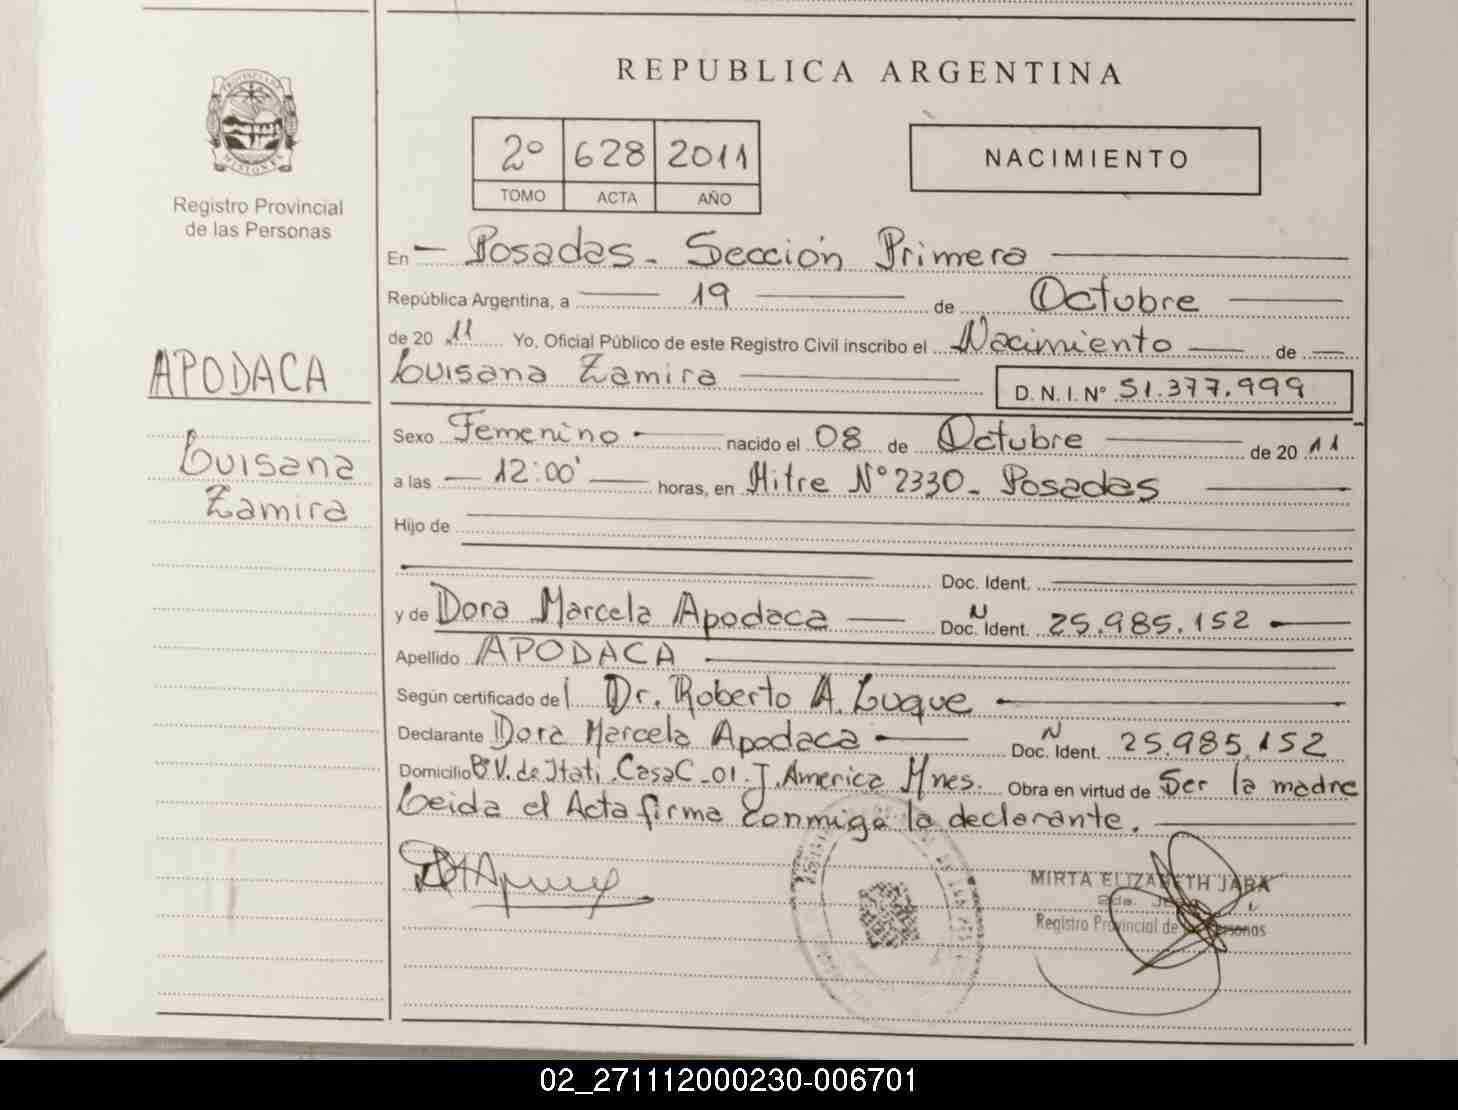 REPUBLICA ARGENTINA
PROVINCIA DE
MISIONES
Registro Provincial
de las Personas
2º 628 2011
TOMO ACTA AÑO
NACIMIENTO
En Posadas - Sección Primera
República Argentina, a 19 de Octubre
de 20 11 Yo, Oficial Público de este Registro Civil inscribo el Nacimiento de
Luisana Zamira D. N. I. Nº 51.377.999
APODACA
Luisana
Zamira
Sexo Femenino nacido el 08 de Octubre de 20 11
a las 12:00' horas, en Mitre Nº 2330 - Posadas
Hijo de
Doc. Ident.
y de Dora Marcela Apodaca Doc. N Ident. 25.985.152
Apellido APODACA
Según certificado del Dr. Roberto A. Luque
Declarante Dora Marcela Apodaca Doc. N Ident. 25.985.152
Domicilio B.V. de Itatí. Casa C-01. J. America Mnes. Obra en virtud de Ser la madre
Leida el Acta firma conmigo la declarante.
MIRTA ELIZABETH JARA
Registro Provincial de las Personas
02_271112000230-006701